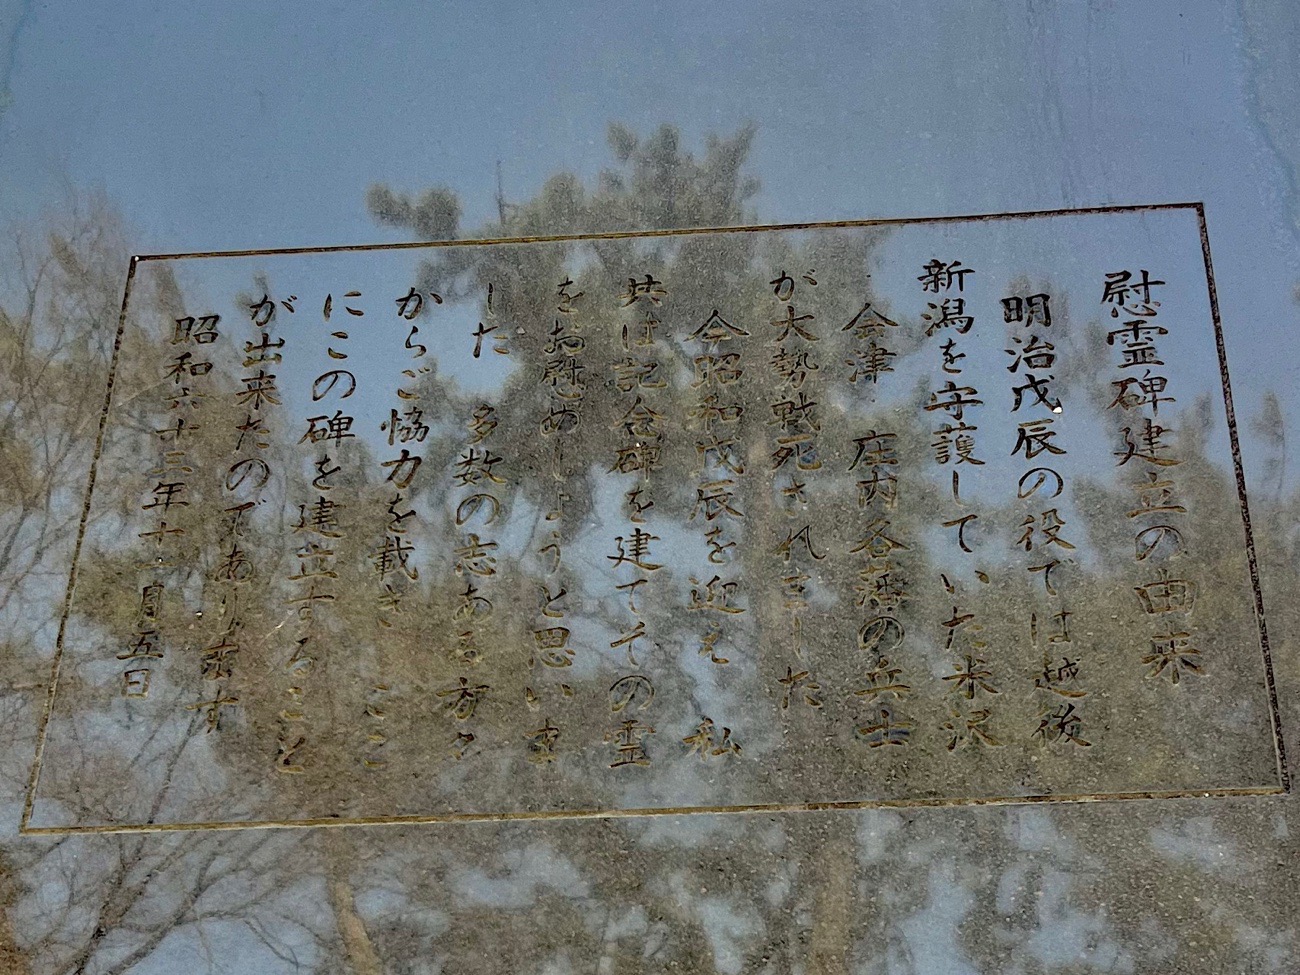 慰霊碑建立の由来
明治戊辰の役では越後
新潟を守護していた米沢
会津 庄内各藩の兵士
が大勢戦死されました
今昭和戊辰を迎え 私
共は記念碑を建てその霊
をお慰めしようと思いま
した 多数の志ある方々
からご協力を載き ここ
にこの碑を建立すること
が出来たのであります
昭和六十三年十一月五日